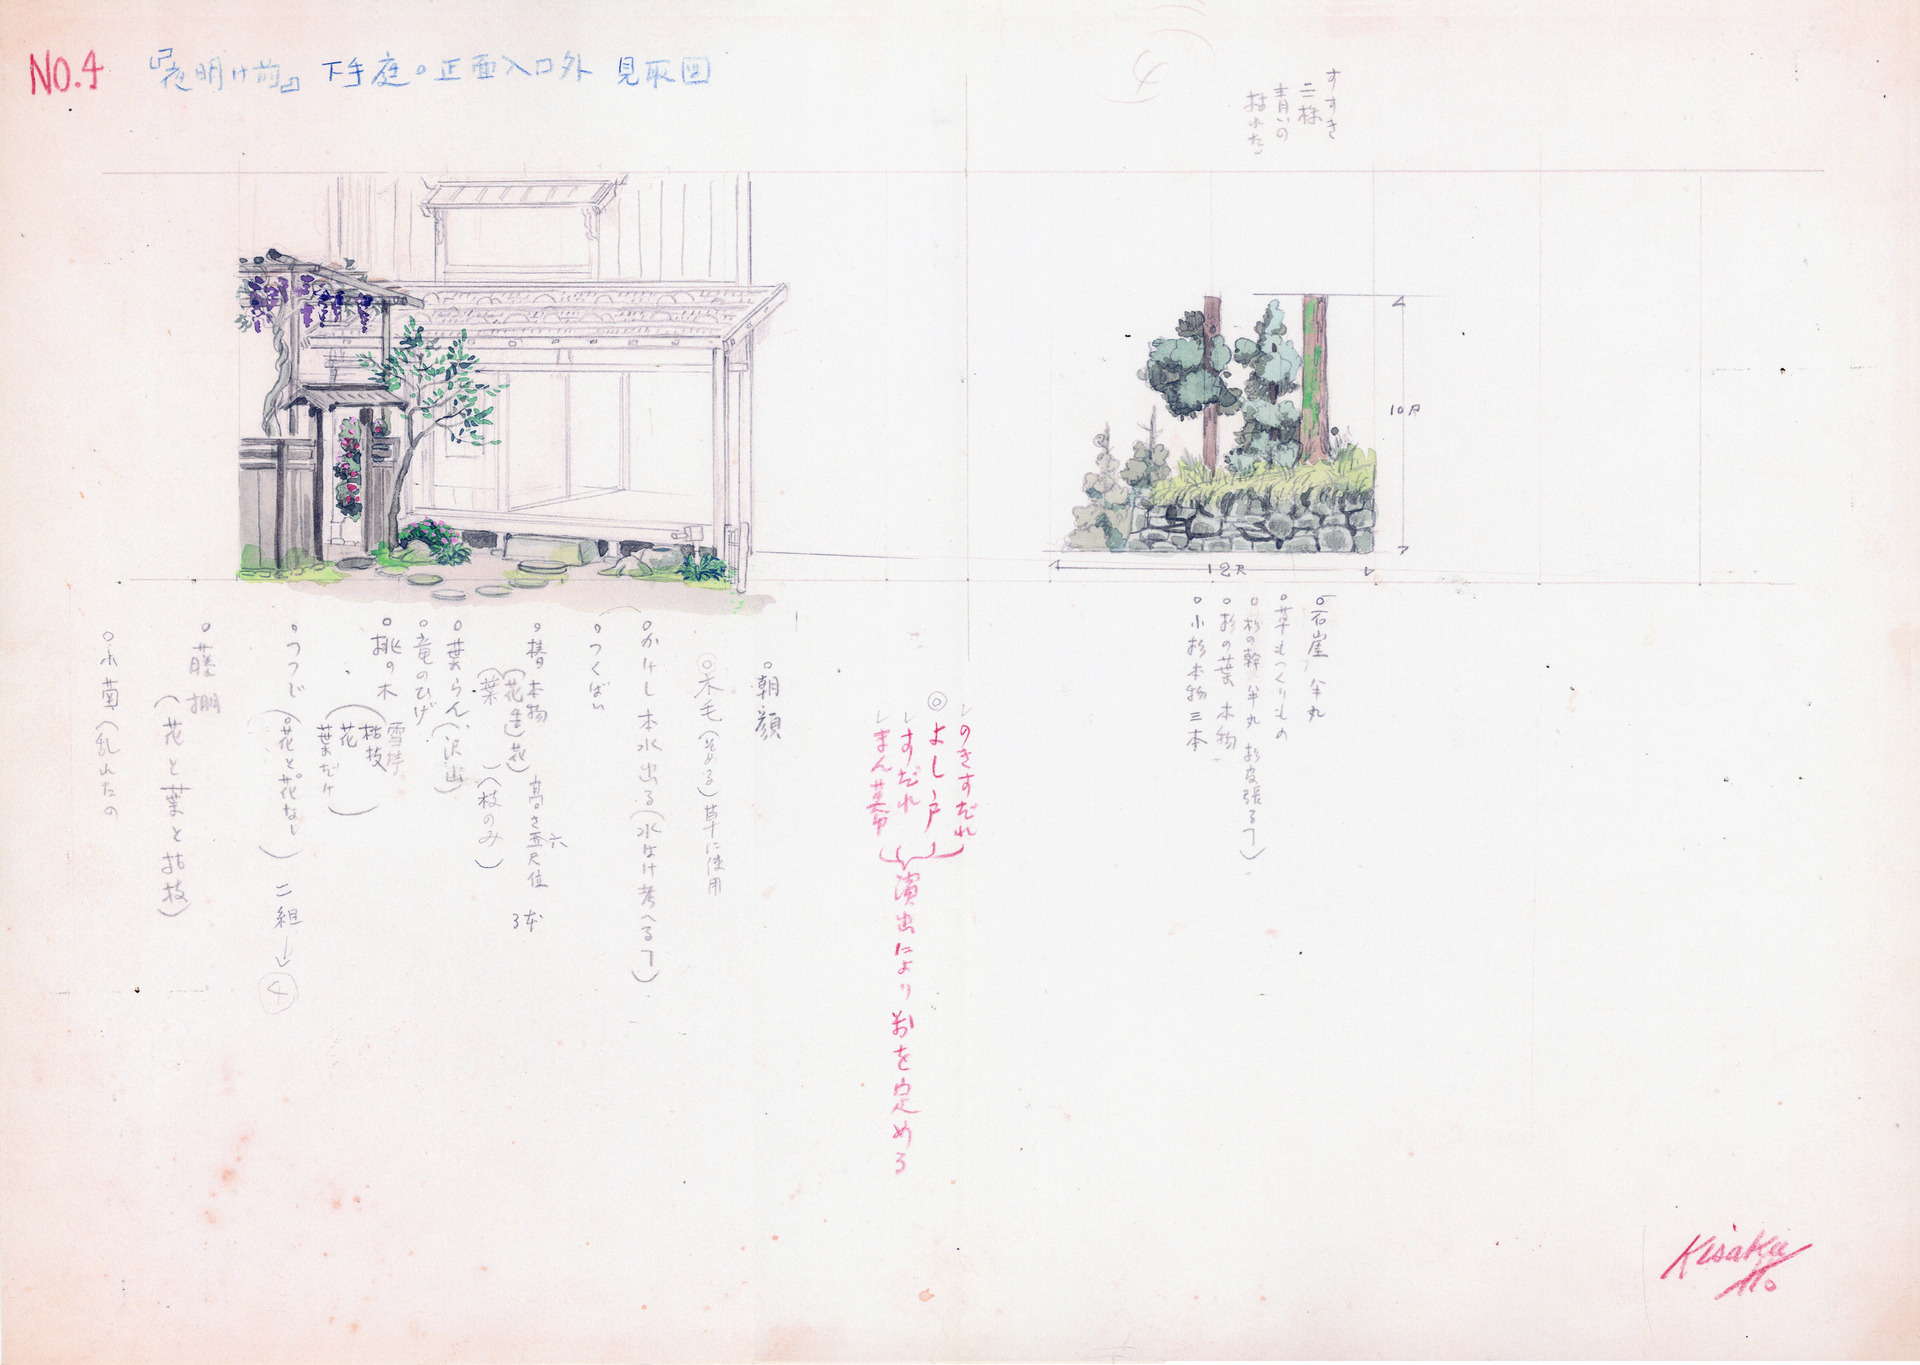 NO.4
『夜明け前』 下手庭。正面入口外 見取図
4
すすき
二株
青いの
枯れたの
10尺
12尺
○石崖 半丸
○草もつくりもの
○杉の幹 半丸 杉皮張る
○杉の葉 本物
○小杉本物三本
レのきすだれ
◎よし戸
レすだれ
レまん幕
演出により別を定める
○朝顔
◎木毛(そめる)草に使用
○かけし 本水出る(水はけ考へる
○つくばい
○椿 本物 高さ 六尺位 3本
(花 花)
(葉)(枝のみ)
○葉らん(沢山)
○竜のひげ
○桃の木
雪
枯枝
花
葉だけ
○つつじ(花と花なし)二組→④
○藤棚
(花と葉と枯枝)
○小菊(乱れたの
Kisaku Ito